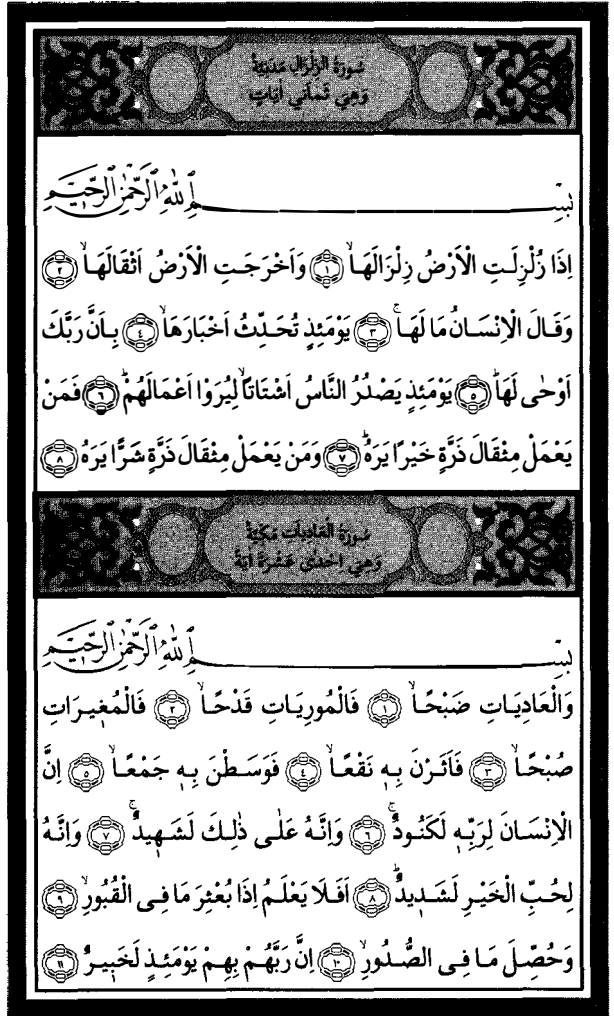 سُورَةُ الزِّلْزَالِ مَدَنِيَّةٌ
وَهِيَ ثَمَانِي اٰيَاتٍ
بِسْمِ اللّٰهِ الرَّحْمٰنِ الرَّح۪يمِ
اِذَا زُلْزِلَتِ الْاَرْضُ زِلْزَالَهَاۙ ﴿١﴾ وَاَخْرَجَتِ الْاَرْضُ اَثْقَالَهَاۙ ﴿٢﴾
وَقَالَ الْاِنْسَانُ مَا لَهَاۚ ﴿٣﴾ يَوْمَئِذٍ تُحَدِّثُ اَخْبَارَهَاۙ ﴿٤﴾ بِاَنَّ رَبَّكَ
اَوْحٰى لَهَاۜ ﴿٥﴾ يَوْمَئِذٍ يَصْدُرُ النَّاسُ اَشْتَاتًاۙ لِيُرَوْا اَعْمَالَهُمْۜ ﴿٦﴾ فَمَنْ
يَعْمَلْ مِثْقَالَ ذَرَّةٍ خَيْرًا يَرَهُۜ ﴿٧﴾ وَمَنْ يَعْمَلْ مِثْقَالَ ذَرَّةٍ شَرًّا يَرَهُ ﴿٨﴾
سُورَةُ الْعَادِيَاتِ مَكِّيَّةٌ
وَهِيَ اِحْدٰى عَشْرَةَ اٰيَةً
بِسْمِ اللّٰهِ الرَّحْمٰنِ الرَّح۪يمِ
وَالْعَادِيَاتِ ضَبْحًاۙ ﴿١﴾ فَالْمُورِيَاتِ قَدْحًاۙ ﴿٢﴾ فَالْمُغ۪يرَاتِ
صُبْحًاۙ ﴿٣﴾ فَاَثَرْنَ بِه۪ نَقْعًاۙ ﴿٤﴾ فَوَسَطْنَ بِه۪ جَمْعًاۙ ﴿٥﴾ اِنَّ
الْاِنْسَانَ لِرَبِّه۪ لَكَنُودٌۚ ﴿٦﴾ وَاِنَّهُ عَلٰى ذٰلِكَ لَشَه۪يدٌۚ ﴿٧﴾ وَاِنَّهُ
لِحُبِّ الْخَيْرِ لَشَد۪يدٌۜ ﴿٨﴾ اَفَلَا يَعْلَمُ اِذَا بُعْثِرَ مَا فِي الْقُبُورِۙ ﴿٩﴾
وَحُصِّلَ مَا فِي الصُّدُورِۙ ﴿١٠﴾ اِنَّ رَبَّهُمْ بِهِمْ يَوْمَئِذٍ لَخَب۪يرٌ ﴿١١﴾